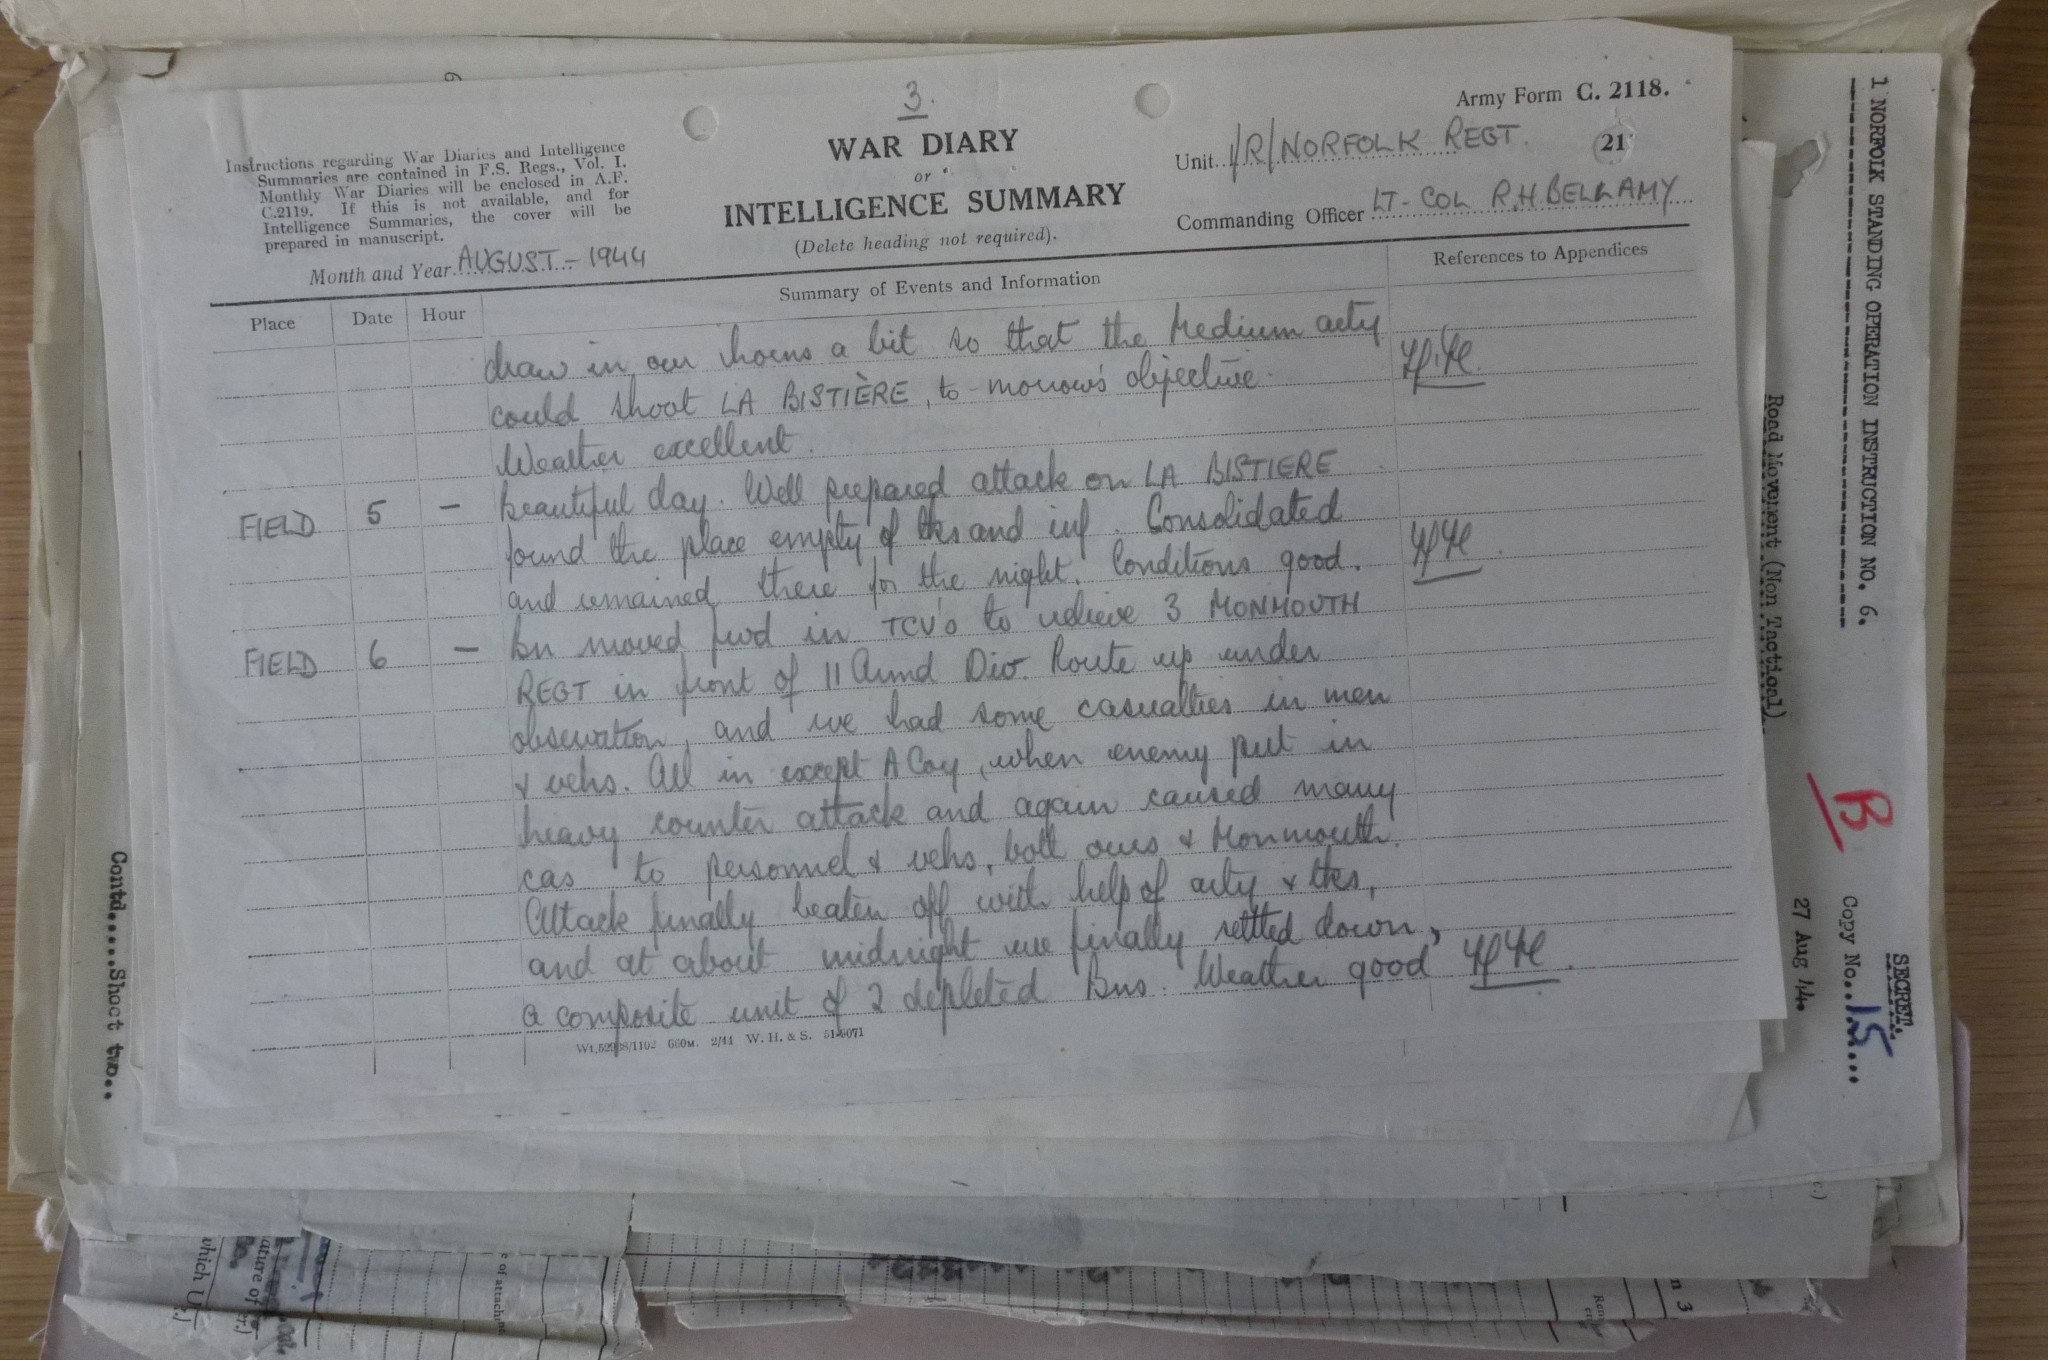 3.
Army Form C. 2118.
Instructions regarding War Diaries and Intelligence
Summaries are contained in F.S. Regs., Vol. I.
Monthly War Diaries will be enclosed in A.F.
C.2119. If this is not available, and for
Intelligence Summaries, the cover will be
prepared in manuscript.
WAR DIARY
or
INTELLIGENCE SUMMARY
(Delete heading not required).
Unit 1/R/NORFOLK REGT. 21
Commanding Officer LT-COL R.H BELLAMY
Month and Year AUGUST - 1944
Place Date Hour Summary of Events and Information References to Appendices
draw in our horns a bit so that the Medium arty
could shoot LA BISTIÈRE, to-morrow's objective.
Weather excellent.
FIELD 5 — Beautiful day. Well prepared attack on LA BISTIERE
found the place empty of tks and inf. Consolidated
and remained there for the night. Conditions good.
FIELD 6 — Bn moved fwd in TCV's to relieve 3 MONMOUTH
REGT in front of 11 Armd Div. Route up under
observation, and we had some casualties in men
& vehs. All in except A Coy, when enemy put in
heavy counter attack and again caused many
cas to personnel & vehs, both ours & Monmouth.
Attack finally beaten off with help of arty & tks,
and at about midnight we finally settled down,
a composite unit of 2 depleted Bns. Weather good
660M. 2/44 W. H. & S.
1 NORFOLK STANDING OPERATION INSTRUCTION NO. 6.
Road Movement (Non Tactical).
B
SECRET.
Copy No..15...
27 Aug 44.
Contd.....Sheet two..
which
of attachm